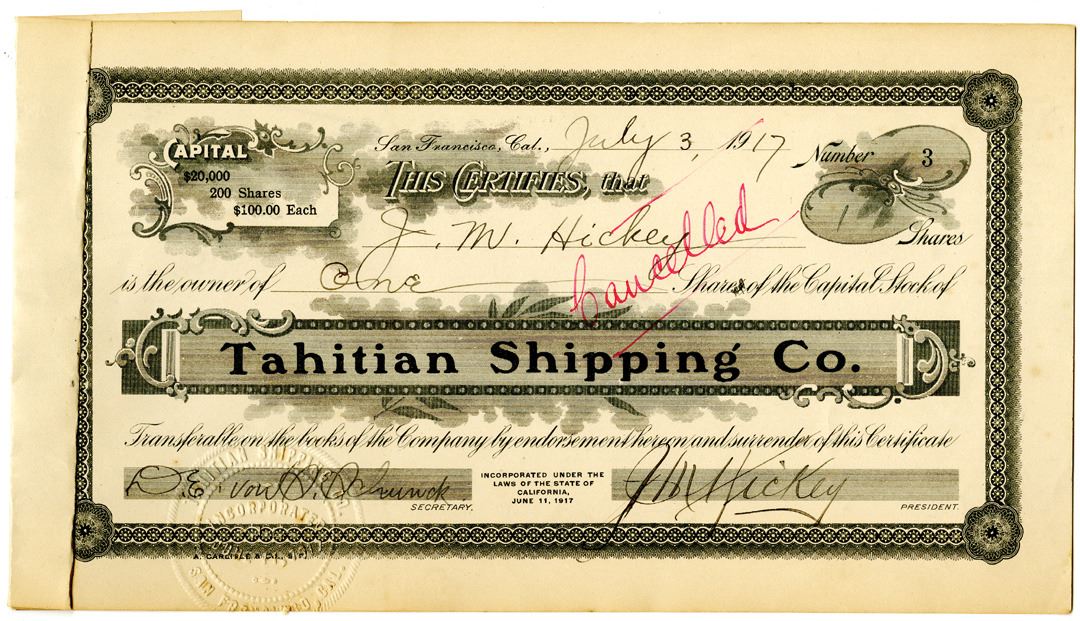 CAPITAL
$20,000
200 Shares
$100.00 Each
San Francisco, Cal., July 3, 1917
Number 3
THIS CERTIFIES, that
1 Shares
J. M. Hickey
Cancelled
is the owner of One Shares of the Capital Stock of
Tahitian Shipping Co.
Transferable on the books of the Company by endorsement hereon and surrender of this Certificate
D. E. von
SECRETARY.
INCORPORATED UNDER THE
LAWS OF THE STATE OF
CALIFORNIA,
JUNE 11, 1917
J M Hickey
PRESIDENT.
TAHITIAN SHIPPING
INCORPORATED
A. CARLISLE & CO., S.F.